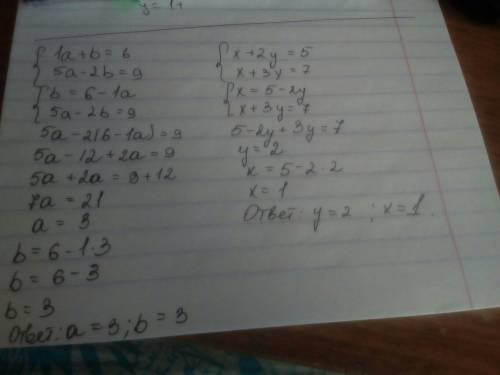 y = 1+
1a + b = 6
5a - 2b = 9
b = 6 - 1a
5a - 2b = 9
5a - 2(6 - 1a) = 9
5a - 12 + 2a = 9
5a + 2a = 9 + 12
7a = 21
a = 3
b = 6 - 1·3
b = 6 - 3
b = 3
Ответ: a = 3; b = 3
x + 2y = 5
x + 3y = 7
x = 5 - 2y
x + 3y = 7
5 - 2y + 3y = 7
y = 2
x = 5 - 2·2
x = 1
Ответ: y = 2 ; x = 1.